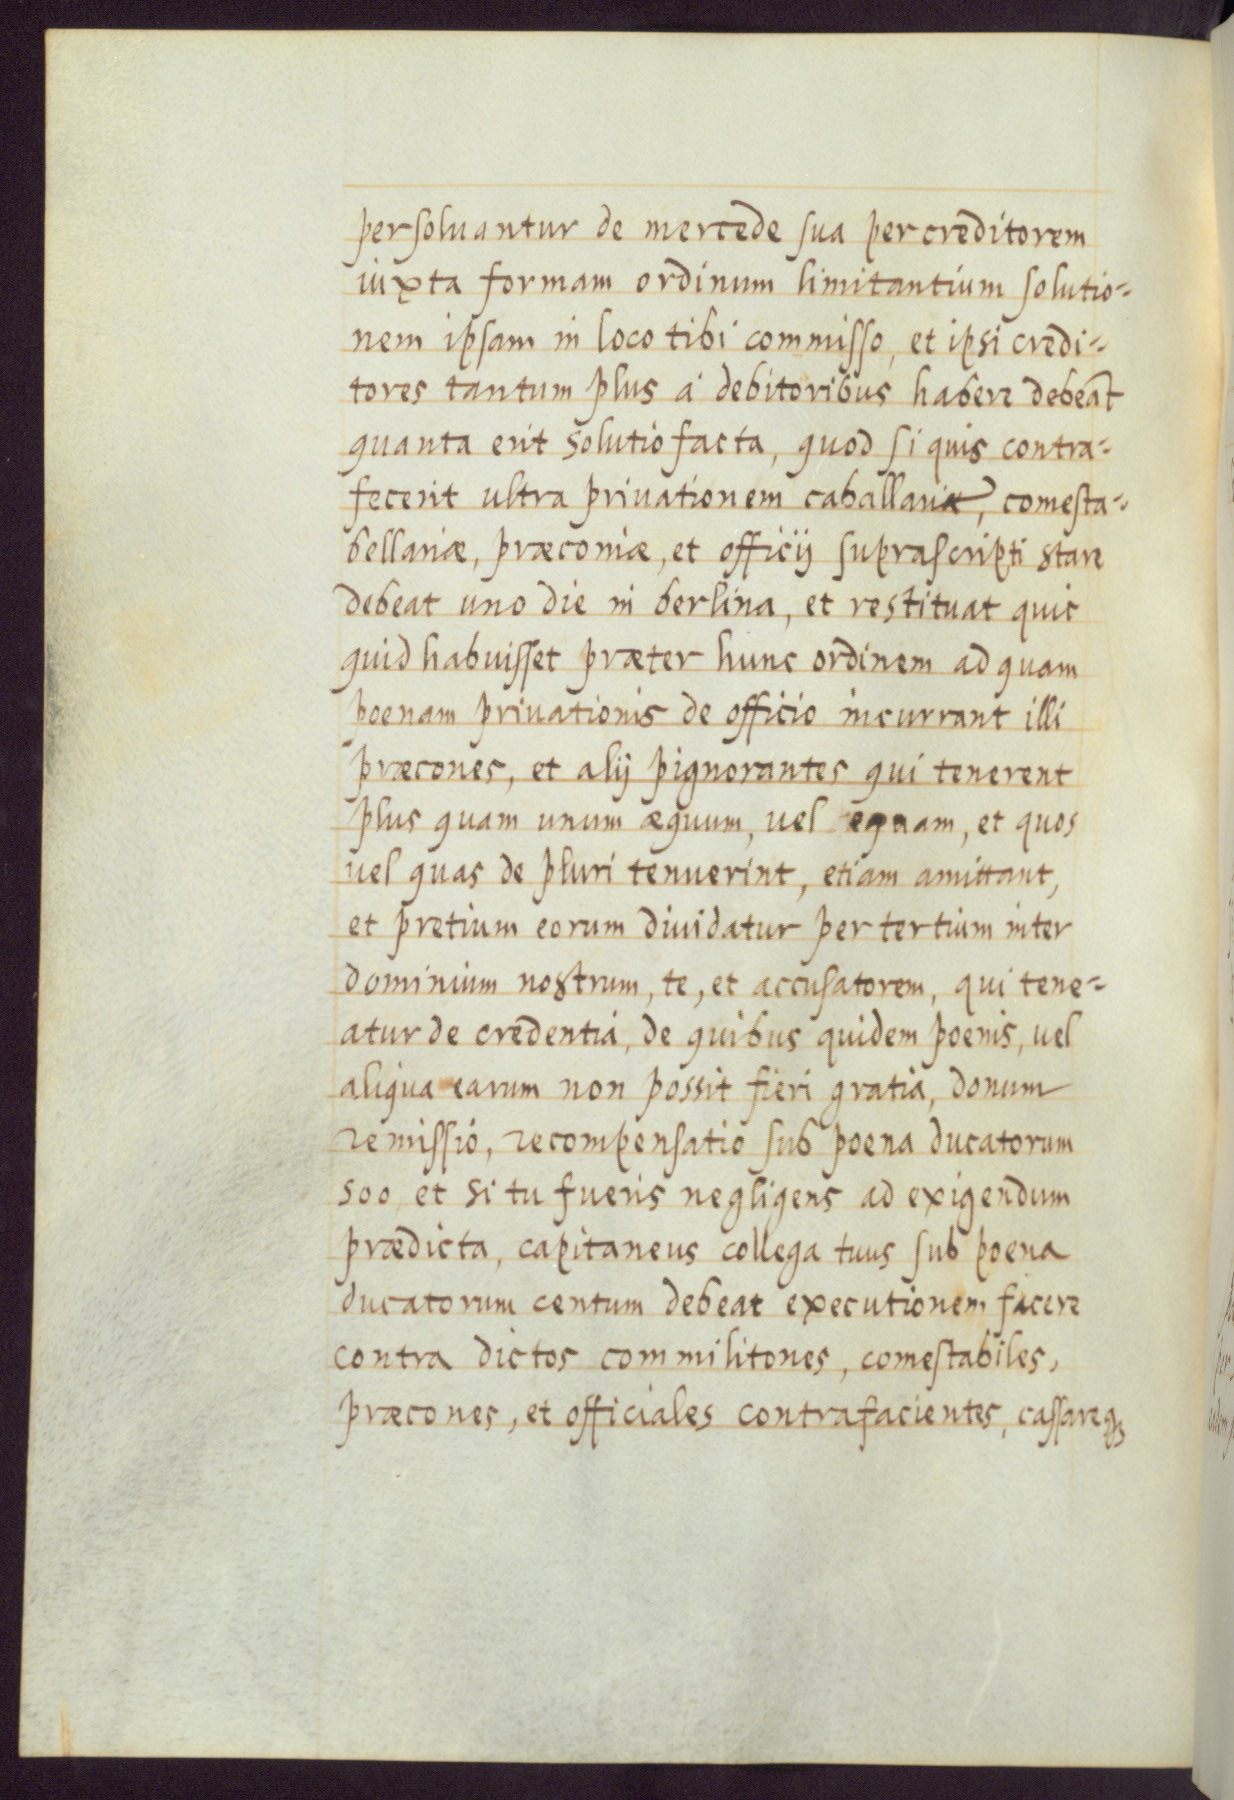 persoluantur de mercede sua per creditorem
iuxta formam ordinum limitantium solutio=
nem ipsam in loco tibi commisso, et ipsi credi=
tores tantum plus à debitoribus habere debeāt
quanta erit solutio facta, quod si quis contra=
fecerit ultra priuationem caballariæ, comesta=
bellariæ, præconiæ, et officij suprascripti stare
debeat uno die in berlina, et restituat quic
quid habuisset præter hunc ordinem ad quam
poenam priuationis de officio incurrant illi
præcones, et alij pignorantes qui tenerent
plus quam unum æquum, uel equam, et quos
uel quas de pluri tenuerint, etiam amittant,
et pretium eorum diuidatur per tertium inter
dominium nostrum, te, et accusatorem, qui tene=
atur de credentia, de quibus quidem poenis, uel
aliqua earum non possit fieri gratia, donum
remissio, recompensatio sub poena ducatorum
500, et si tu fueris negligens ad exigendum
prædicta, capitaneus collega tuus sub poena
ducatorum centum debeat executionem facere
contra dictos commilitones, comestabiles,
præcones, et officiales contrafacientes, cassareq3